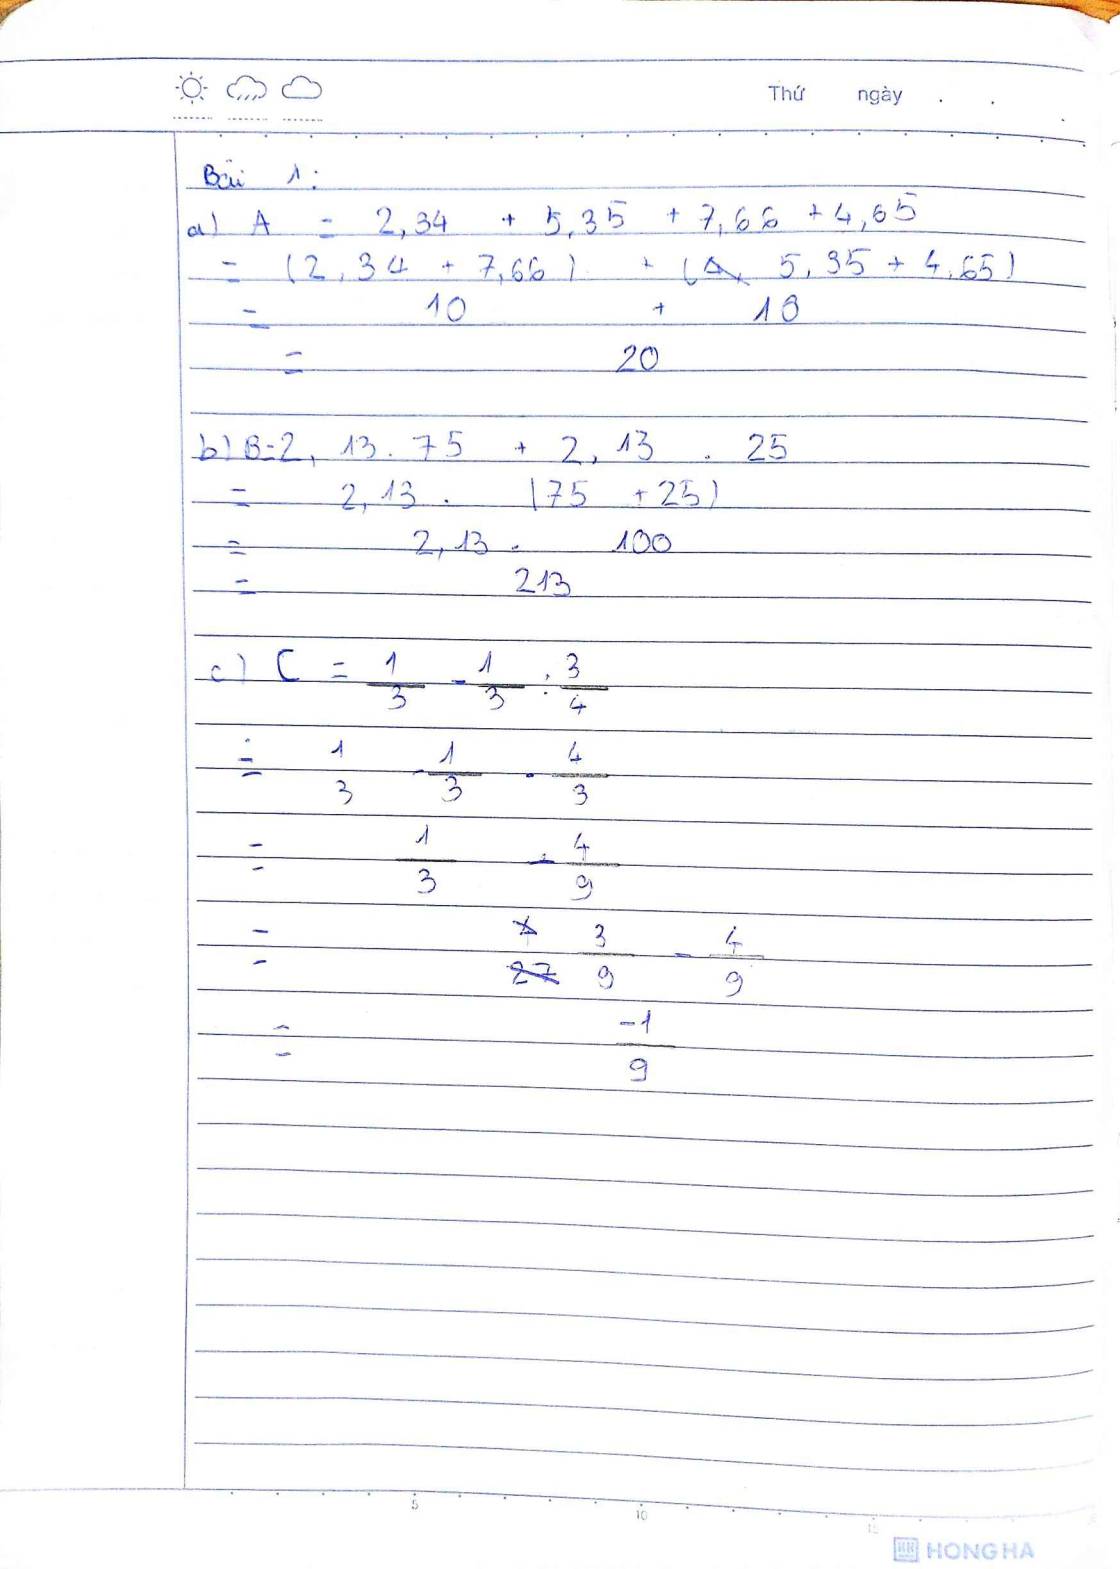 Thứ ngày . .
Bài 1:
a) A = 2,34 + 5,35 + 7,66 + 4,65
= (2,34 + 7,66) + (5,35 + 4,65)
= 10 + 10
= 20
b) B = 2,13 . 75 + 2,13 . 25
= 2,13 . (75 + 25)
= 2,13 . 100
= 213
c) C = 1/3 - 1/3 : 3/4
= 1/3 - 1/3 . 4/3
= 1/3 - 4/9
= 3/9 - 4/9
= -1/9
5 10 15
HH HONG HA